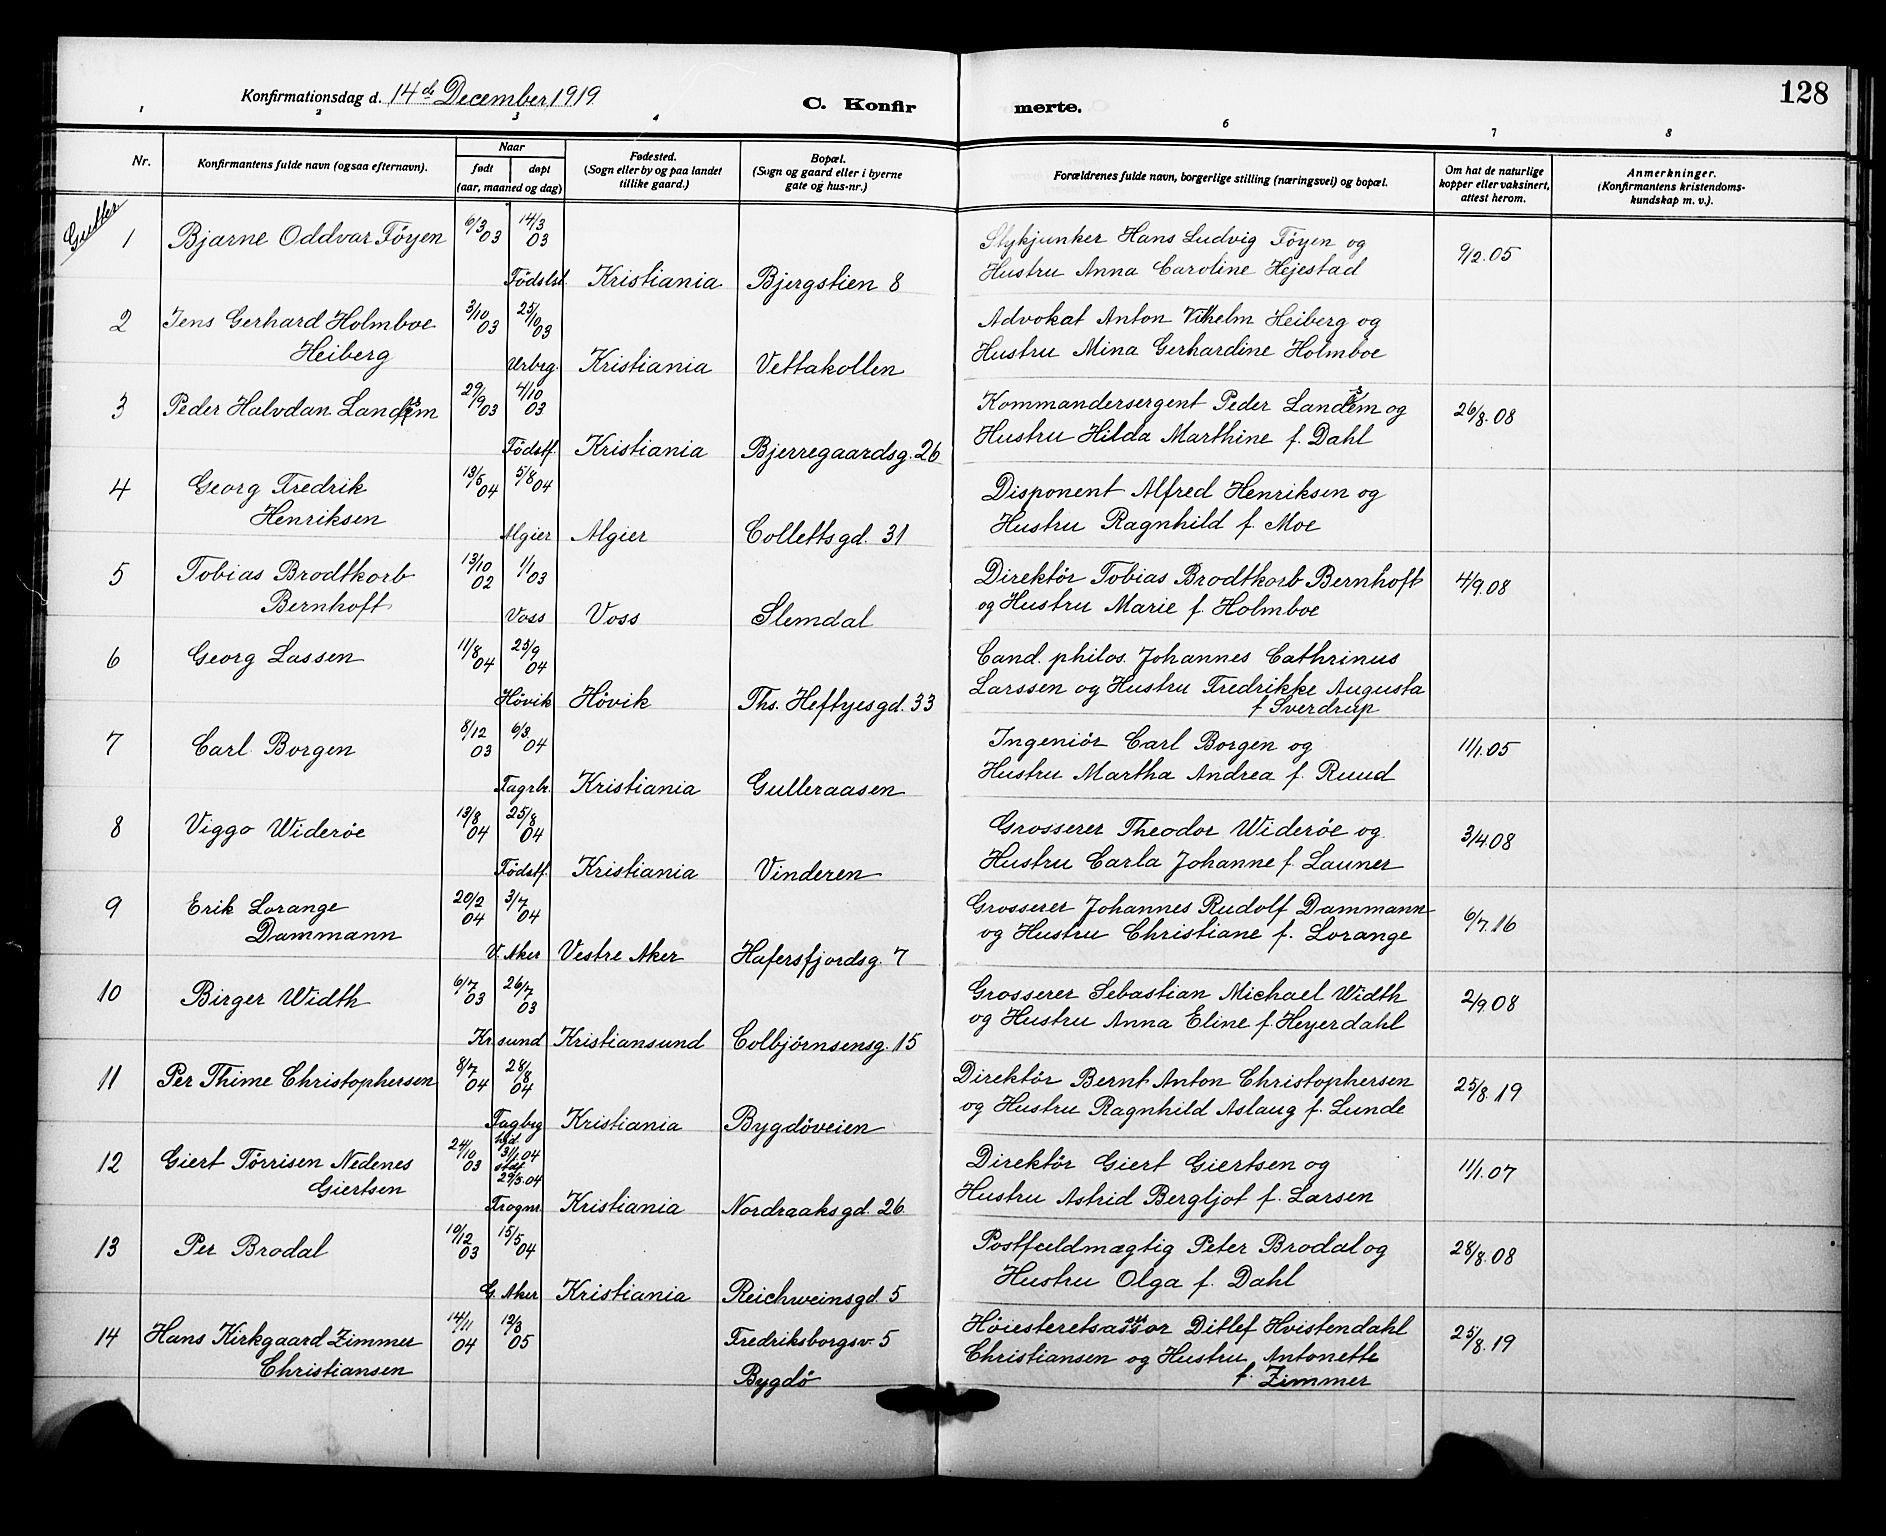 128
Konfirmationsdag d. 14de December 1919
C. Konfirmerte.
1 2 3 4 6 7 8
Nr.
Konfirmantens fulde navn (ogsaa efternavn).
Naar
født
døpt
(aar, maaned og dag)
Fødested.
(Sogn eller by og paa landet
tillike gaard.)
Bopæl.
(Sogn og gaard eller i byerne
gate og hus-nr.)
Forældrenes fulde navn, borgerlige stilling (næringsvei) og bopæl.
Om hat de naturlige
kopper eller vaksinert,
attest herom.
Anmerkninger.
(Konfirmantens kristendoms-
kundskap m. v.).
Gutter
1 Bjarne Oddvar Föyen 6/3 03 14/3 03 Stykjunker Hans Ludvig Föyen og 9/2.05
Födslst. Kristiania Bjergstien 8 Hustru Anna Caroline Hejestad
2 Jens Gerhard Holmboe 3/10 03 25/10 03 Advokat Anton Vilhelm Heiberg og
Heiberg Urbrg. Kristiania Vettakollen Hustru Mina Gerhardine Holmboe
3 Peder Halvdan Landsem 29/9 03 4/10 03 Kommandersergent Peder Landsem og 26/8.08
Födstf. Kristiania Bjerregaardsg. 26 Hustru Hilda Marthine f. Dahl
4 Georg Fredrik 13/5 04 5/8 04 Disponent Alfred Henriksen og
Henriksen Algier Algier Collettsgd. 31 Hustru Ragnhild f. Moe
5 Tobias Brodtkorb 13/10 02 1/1 03 Direktör Tobias Brodtkorb Bernhoft 4/9.08
Bernhoft Voss Voss Slemdal og Hustru Marie f. Holmboe
6 Georg Lassen 11/8 04 25/9 04 Cand. philos. Johannes Cathrinus
Hövik Hövik Ths. Heftyesgd. 33 Larssen og Hustru Fredrikke Augusta
f. Sverdrup
7 Carl Borgen 8/12 03 6/3 04 Ingeniör Carl Borgen og 11/1.05
Fagrb. Kristiania Gulleraasen Hustru Martha Andrea f. Ruud
8 Viggo Wideröe 13/8 04 25/8 04 Grosserer Theodor Wideröe og 3/4.08
Födstf. Kristiania Vinderen Hustru Carla Johanne f. Launer
9 Erik Lorange 20/2 04 3/7 04 Grosserer Johannes Rudolf Dammann 6/7.16
Dammann V. Aker Vestre Aker Hafersfjordsg. 7 og Hustru Christiane f. Lorange
10 Birger Width 6/7 03 26/7 03 Grosserer Sebastian Michael Width 2/9.08
Kr.sund Kristiansund Colbjörnsensg. 15 og Hustru Anna Eline f. Heyerdahl
11 Per Thime Christophersen 8/7 04 28/8 04 Direktör Bernt Anton Christophersen 25/8.19
Fagbrg Kristiania Bygdöveien og Hustru Ragnhild Aslaug f. Lunde
12 Giert Törrisen Nedenes 24/10 03 hjd. 31/1 04 stdf. 29/5.04 Direktör Giert Giertsen og 11/1.07
Giertsen Frognr. Kristiania Nordraaksgd. 26 Hustru Astrid Bergljot f. Larsen
13 Per Brodal 10/12 03 15/5 04 Postfuldmægtig Peter Brodal og 28/8.08
G. Aker Kristiania Reichweinsgd. 5 Hustru Olga f. Dahl
14 Hans Kirkgaard Zimmer 14/11 04 12/3 05 Fredriksborgsv. 5 Höiesteretsassessor Ditlef Hvistendahl 25/8.19
Christiansen Bygdö Christiansen og Hustru Antonette
f. Zimmer